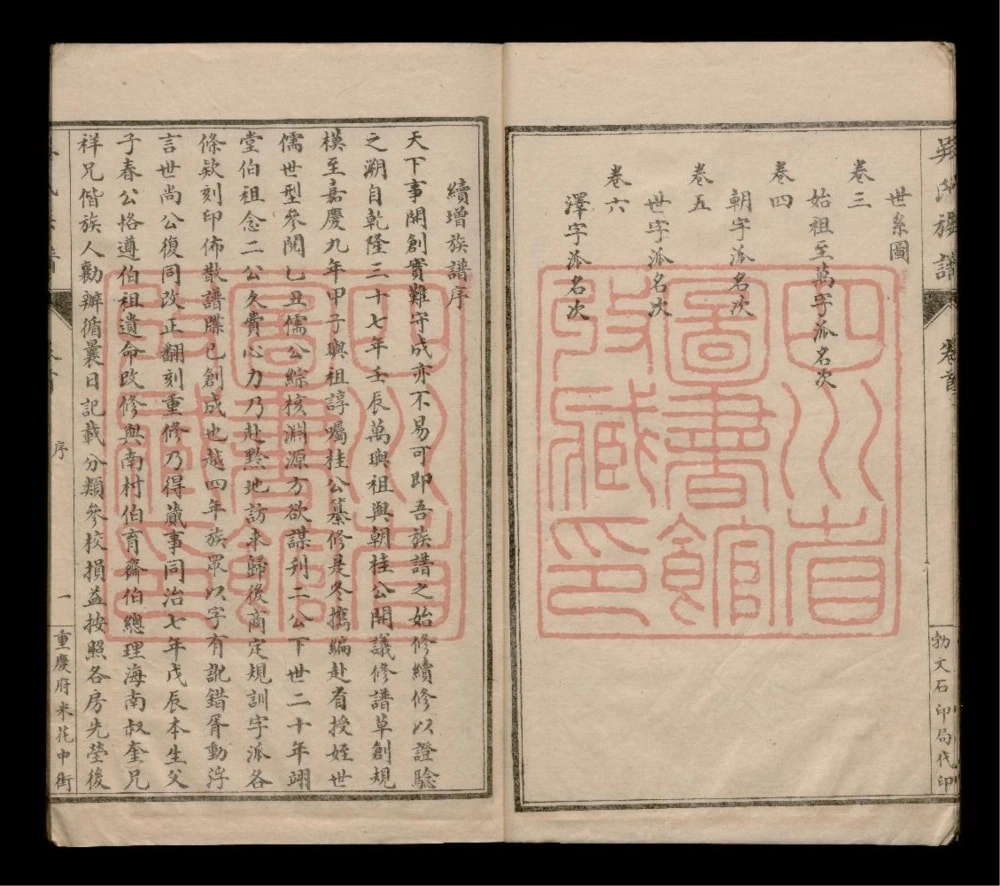 吳氏族譜
卷首
勃文石印局代印
世系圖
卷三
始祖至萬字派名次
卷四
朝字派名次
卷五
世字派名次
卷六
澤字派名次
四川省
圖書館
收藏印
續增族譜序
天下事開創實難守成亦不易可即吾族譜之始修續修以證驗
之溯自乾隆三十七年壬辰萬璵祖與朝桂公開議修譜草創規
模至嘉慶九年甲子興祖諄囑桂公纂修是冬攜編赴省授姪世
儒世型參閱乙丑儒公綜核淵源方欲謀刋二公下世二十年翊
堂伯祖念二公久費心力乃赴黔地訪來歸後商定規訓字派各
條欵刻印佈散譜牒已創成也越四年族眾以字有訛錯胥動浮
言世尚公復同改正翻刻重修乃得蕆事同治七年戊辰本生父
子春公恪遵伯祖遺命改修與南村伯育齋伯總理海南叔奎兄
祥兄偕族人勸辦循曩日記載分類參校損益按照各房先塋後
序
一
重慶府米花中街